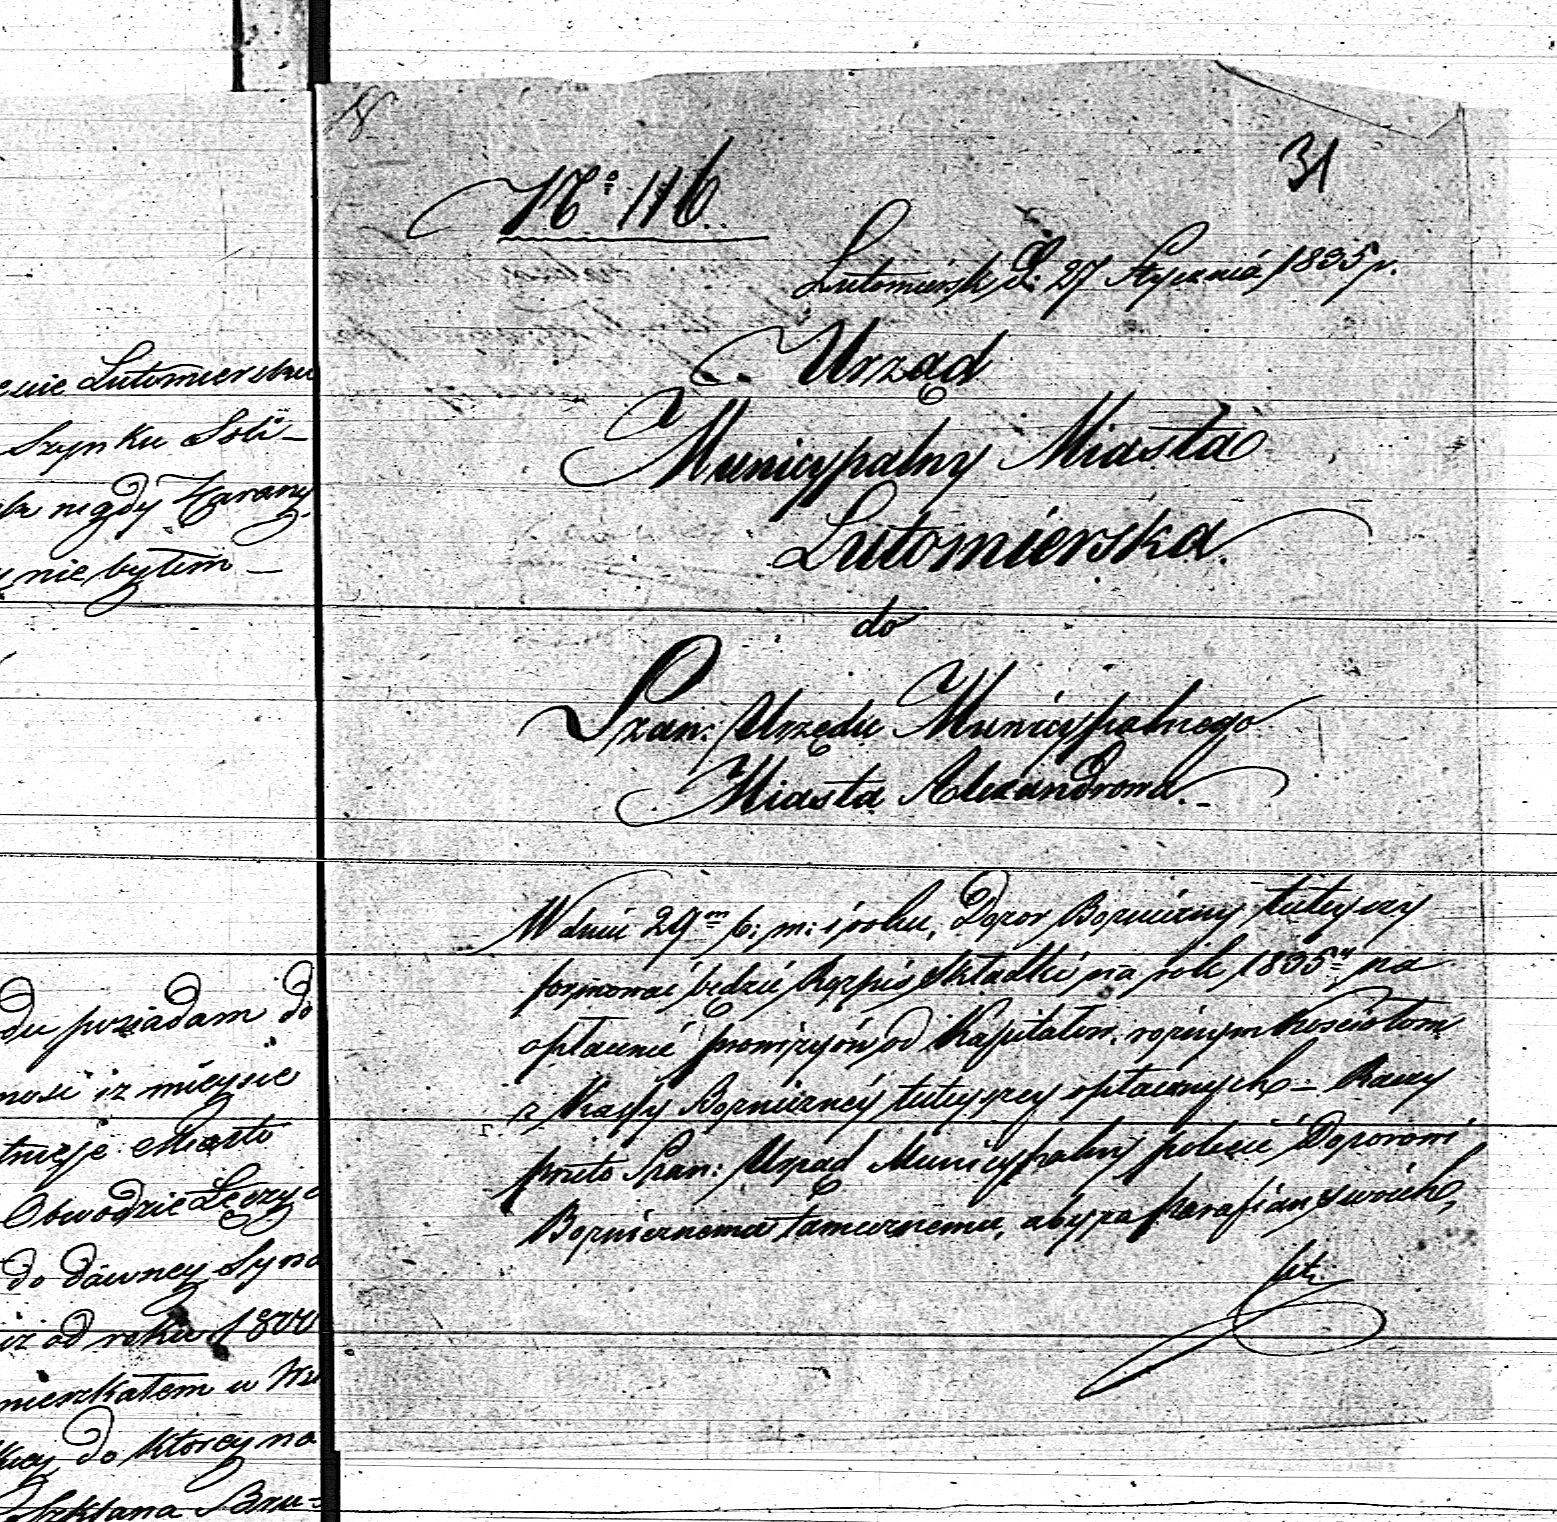 esie Lutomiersku
Szynku Soli-
nigdy Karany
nie byłem –
du posiadam do
ności iz mieysce
Miasto
Obwodzie Łęczyc
do dawney Syna
iz od roku 18
mieszkałem u
do ktorey na
Szklana Bru-
31
No. 116
Lutomiersk, D. 27 Stycznia 1835 r.
Urząd
Municypalny Miasta
Lutomierska
do
Szan: Urzędu Municypalnego
Miasta Alexandrowa. –
W dniu 29m b: m: i roku, Dozor Bozniczny tuteyszy
formować będzie Rozpis składki na rok 1835 na
opłacenie prowizyiów od Kapitałów, roznym Kosciołom
z Kassy Bozniczney tuteyszey opłacanych – Raczy
przeto Szan: Urząd Municypalny polecić Dozorowi
Boznicznemu tamecznemu, aby za parafian swoich,